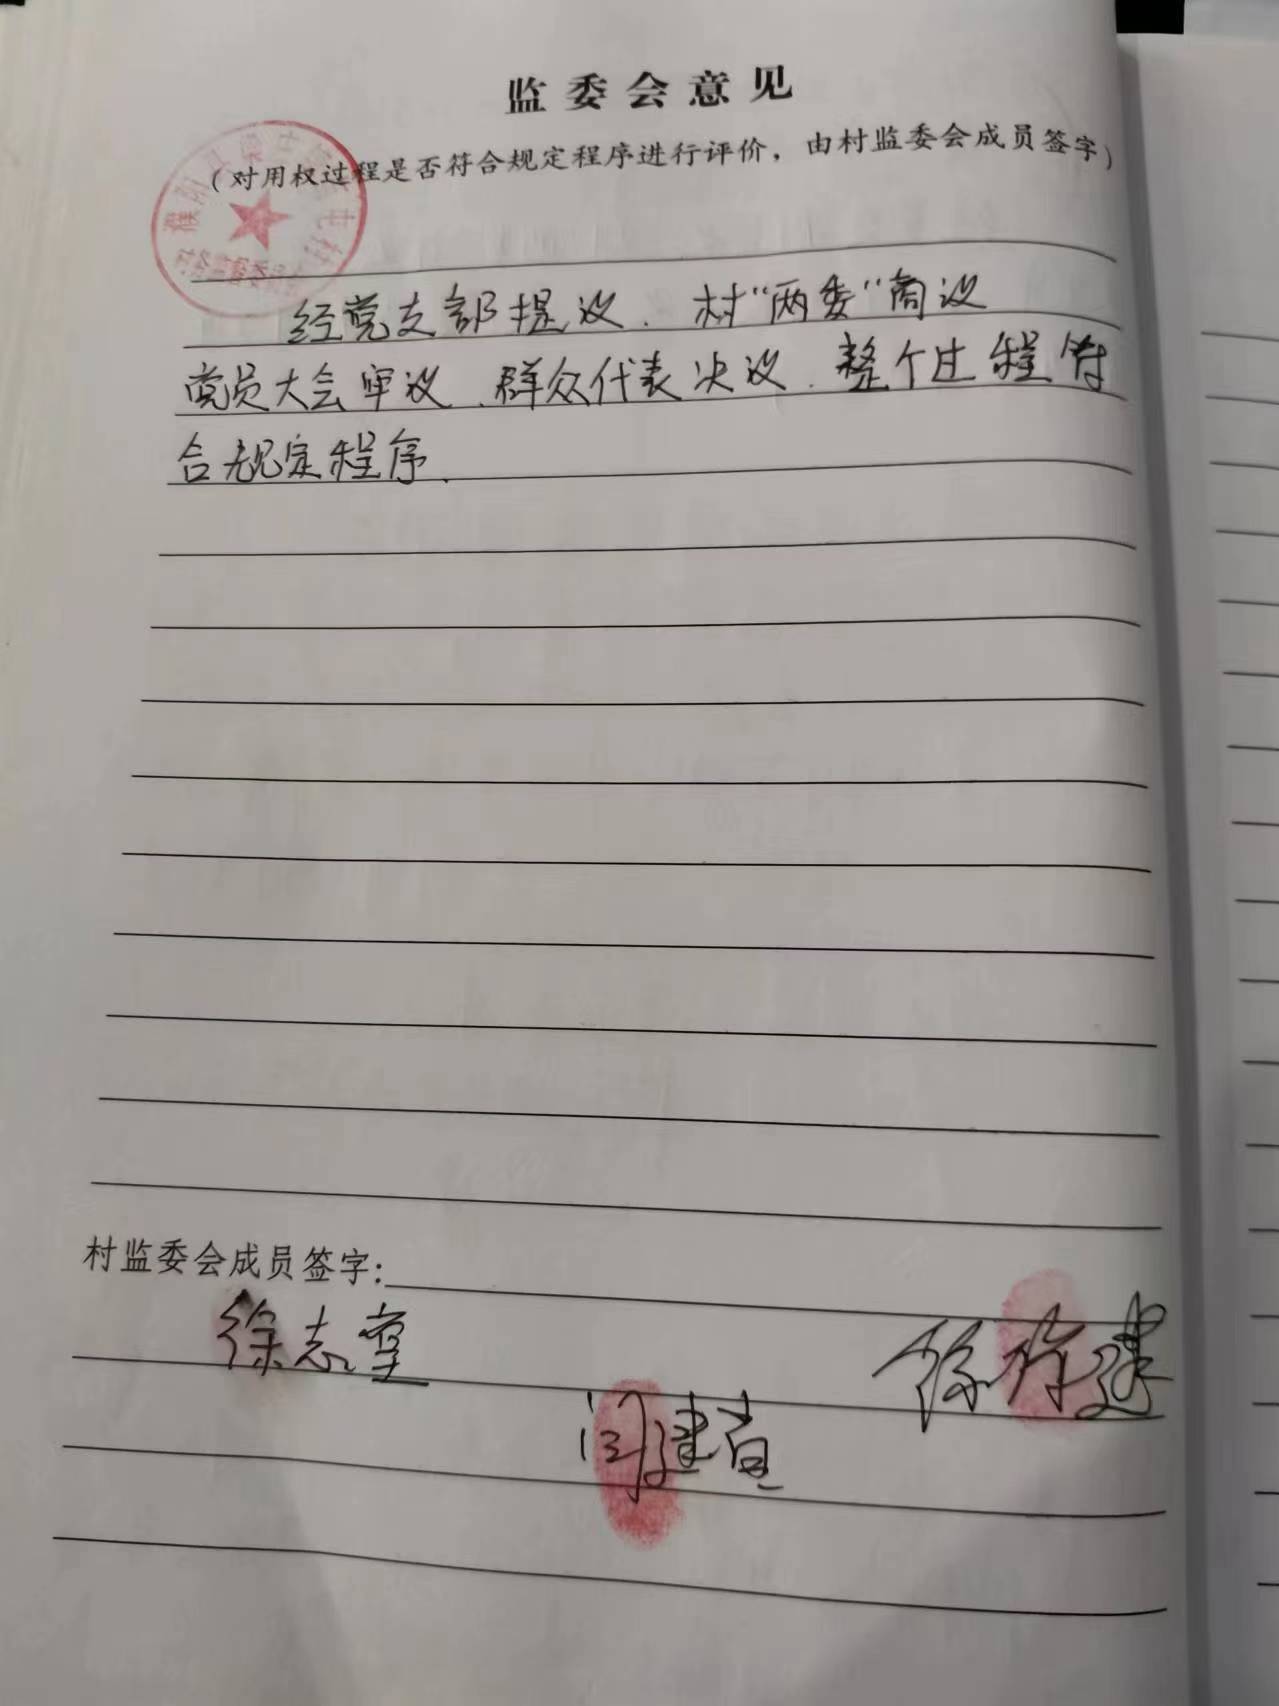 监委会意见
（对用权过程是否符合规定程序进行评价，由村监委会成员签字）
经党支部提议、村“两委”商议
党员大会审议、群众代表决议、整个过程符
合规定程序.
村监委会成员签字：
徐志堂
闫建
徐